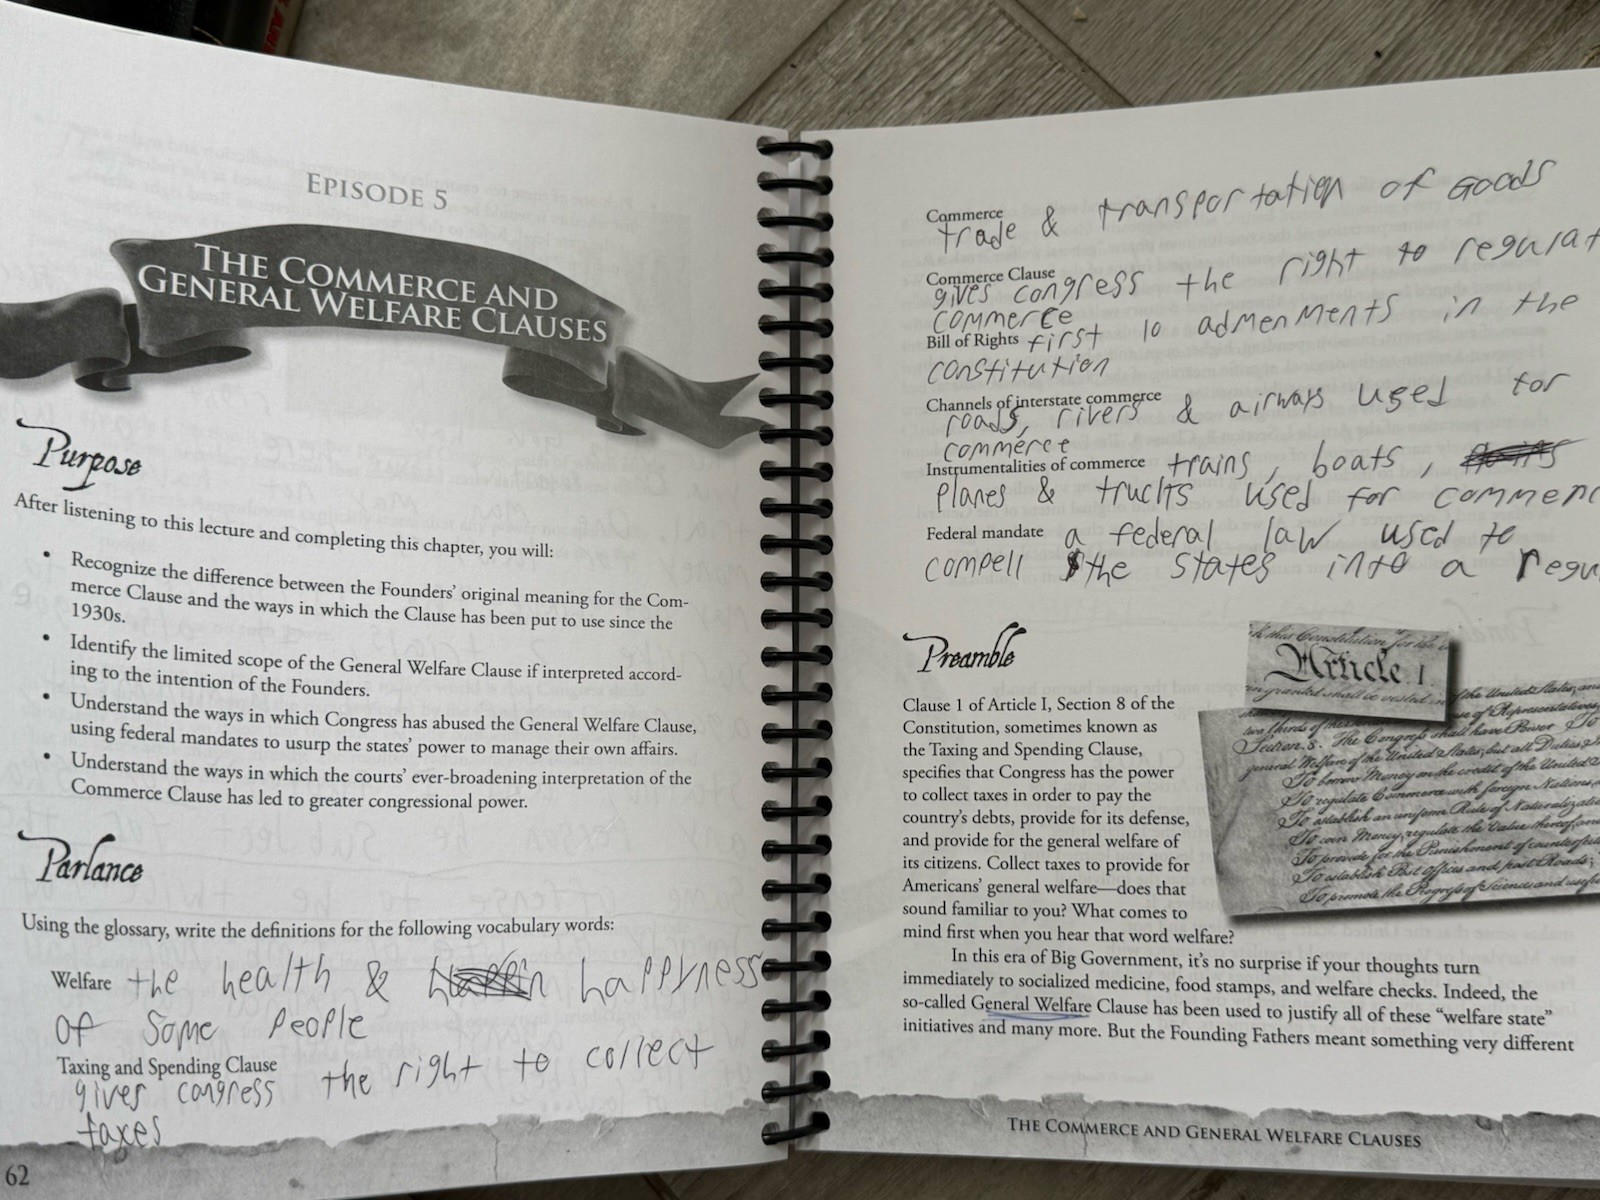 EPISODE 5
THE COMMERCE AND
GENERAL WELFARE CLAUSES
Purpose
After listening to this lecture and completing this chapter, you will:
• Recognize the difference between the Founders' original meaning for the Com-
merce Clause and the ways in which the Clause has been put to use since the
1930s.
• Identify the limited scope of the General Welfare Clause if interpreted accord-
ing to the intention of the Founders.
• Understand the ways in which Congress has abused the General Welfare Clause,
using federal mandates to usurp the states' power to manage their own affairs.
• Understand the ways in which the courts' ever-broadening interpretation of the
Commerce Clause has led to greater congressional power.
Parlance
Using the glossary, write the definitions for the following vocabulary words:
Welfare the health & happyness
of some people
Taxing and Spending Clause the right to collect
gives congress
taxes
62
Commerce
trade & transportation of Goods
Commerce Clause
gives congress the right to regulat
commerce
Bill of Rights first 10 admenments in the
constitution
Channels of interstate commerce
roads, rivers & airways used for
commerce
Instrumentalities of commerce trains, boats,
planes & trucks used for
Federal mandate a federal law used to
compell the states into a regu
Preamble
Article 1
Clause 1 of Article I, Section 8 of the
Constitution, sometimes known as
the Taxing and Spending Clause,
specifies that Congress has the power
to collect taxes in order to pay the
country's debts, provide for its defense,
and provide for the general welfare of
its citizens. Collect taxes to provide for
Americans' general welfare—does that
sound familiar to you? What comes to
mind first when you hear that word welfare?
In this era of Big Government, it's no surprise if your thoughts turn
immediately to socialized medicine, food stamps, and welfare checks. Indeed, the
so-called General Welfare Clause has been used to justify all of these "welfare state"
initiatives and many more. But the Founding Fathers meant something very different
Section. 8. The Congress shall have Power To
general Welfare of the United States; but all Duties
To borrow Money on the credit of the United
To regulate Commerce with foreign Nations,
To establish an uniform Rule of
To coin Money, regulate the Value thereof, and
To provide for the Punishment of
To establish Post Offices and post Roads;
To promote the Progress of Science and
THE COMMERCE AND GENERAL WELFARE CLAUSES